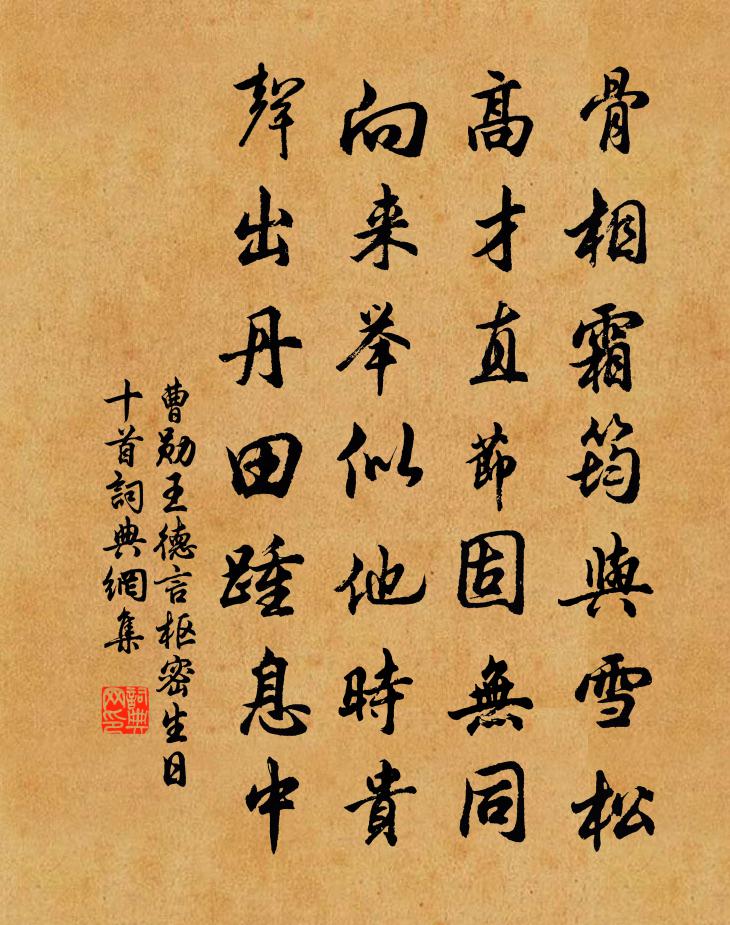 骨相霜筠與雪松
高才直節固無同
向来举似他時貴
聲出丹田踵息中
曹勛王德言枢密生日
十首詞典網集
詞典网印